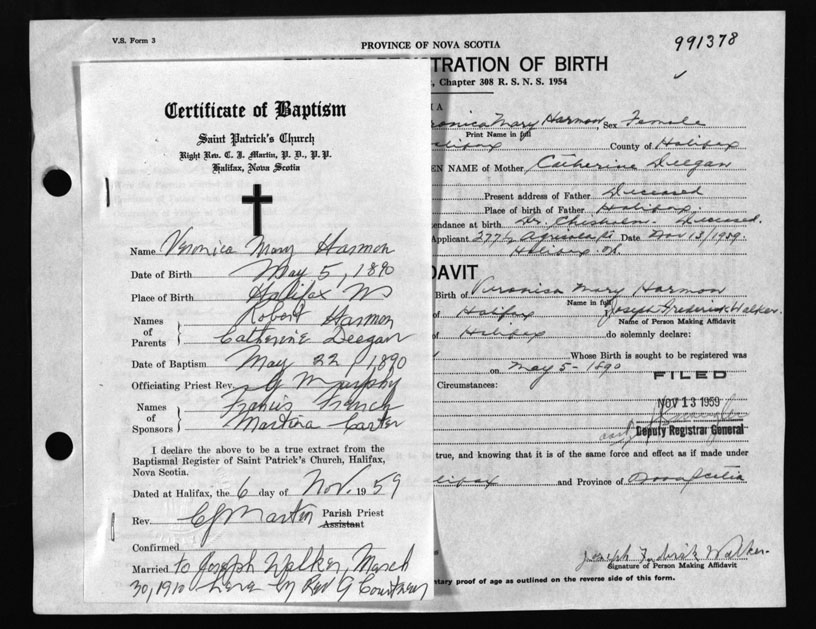 V.S. Form 3
PROVINCE OF NOVA SCOTIA
991378
TRATION OF BIRTH
Chapter 308 R. S. N. S. 1954
Certificate of Baptism
Saint Patrick's Church
Right Rev. C. J. Martin, P. D., P. P.
Halifax, Nova Scotia
Name Veronica Mary Harmon
Date of Birth May 5, 1890
Place of Birth Halifax NS
Names of Parents
Robert Harmon
Catherine Deegan
Date of Baptism May 22, 1890
Officiating Priest Rev. G Murphy
Names of Sponsors
Francis French
Martina Carter
I declare the above to be a true extract from the
Baptismal Register of Saint Patrick's Church, Halifax,
Nova Scotia.
Dated at Halifax, the 6 day of Nov. 1959
Rev. CJ Martin Parish Priest
Assistant
Confirmed
Married to Joseph Walker, March
30, 1910 here by Rev G Courtney
ronica Mary Harmon, Sex Female
Print Name in full
alifax County of Halifax
EN NAME of Mother Catherine Deegan
Present address of Father Deceased
Place of birth of Father Halifax.
endance at birth Dr. Chisholm. Deceased.
Applicant 277½ Agricola St Date Nov 13/1959.
Halifax N.S.
DAVIT
Birth of Veronica Mary Harmon
Name in full
of Halifax Joseph Frederick Walker.
Name of Person Making Affidavit
of Halifax do solemnly declare:
Whose Birth is sought to be registered was
on May 5 - 1890
Circumstances:
FILED
NOV 13 1959
Deputy Registrar General
true, and knowing that it is of the same force and effect as if made under
alifax and Province of Nova Scotia
Joseph Frederick Walker.
Signature of Person Making Affidavit
tary proof of age as outlined on the reverse side of this form.